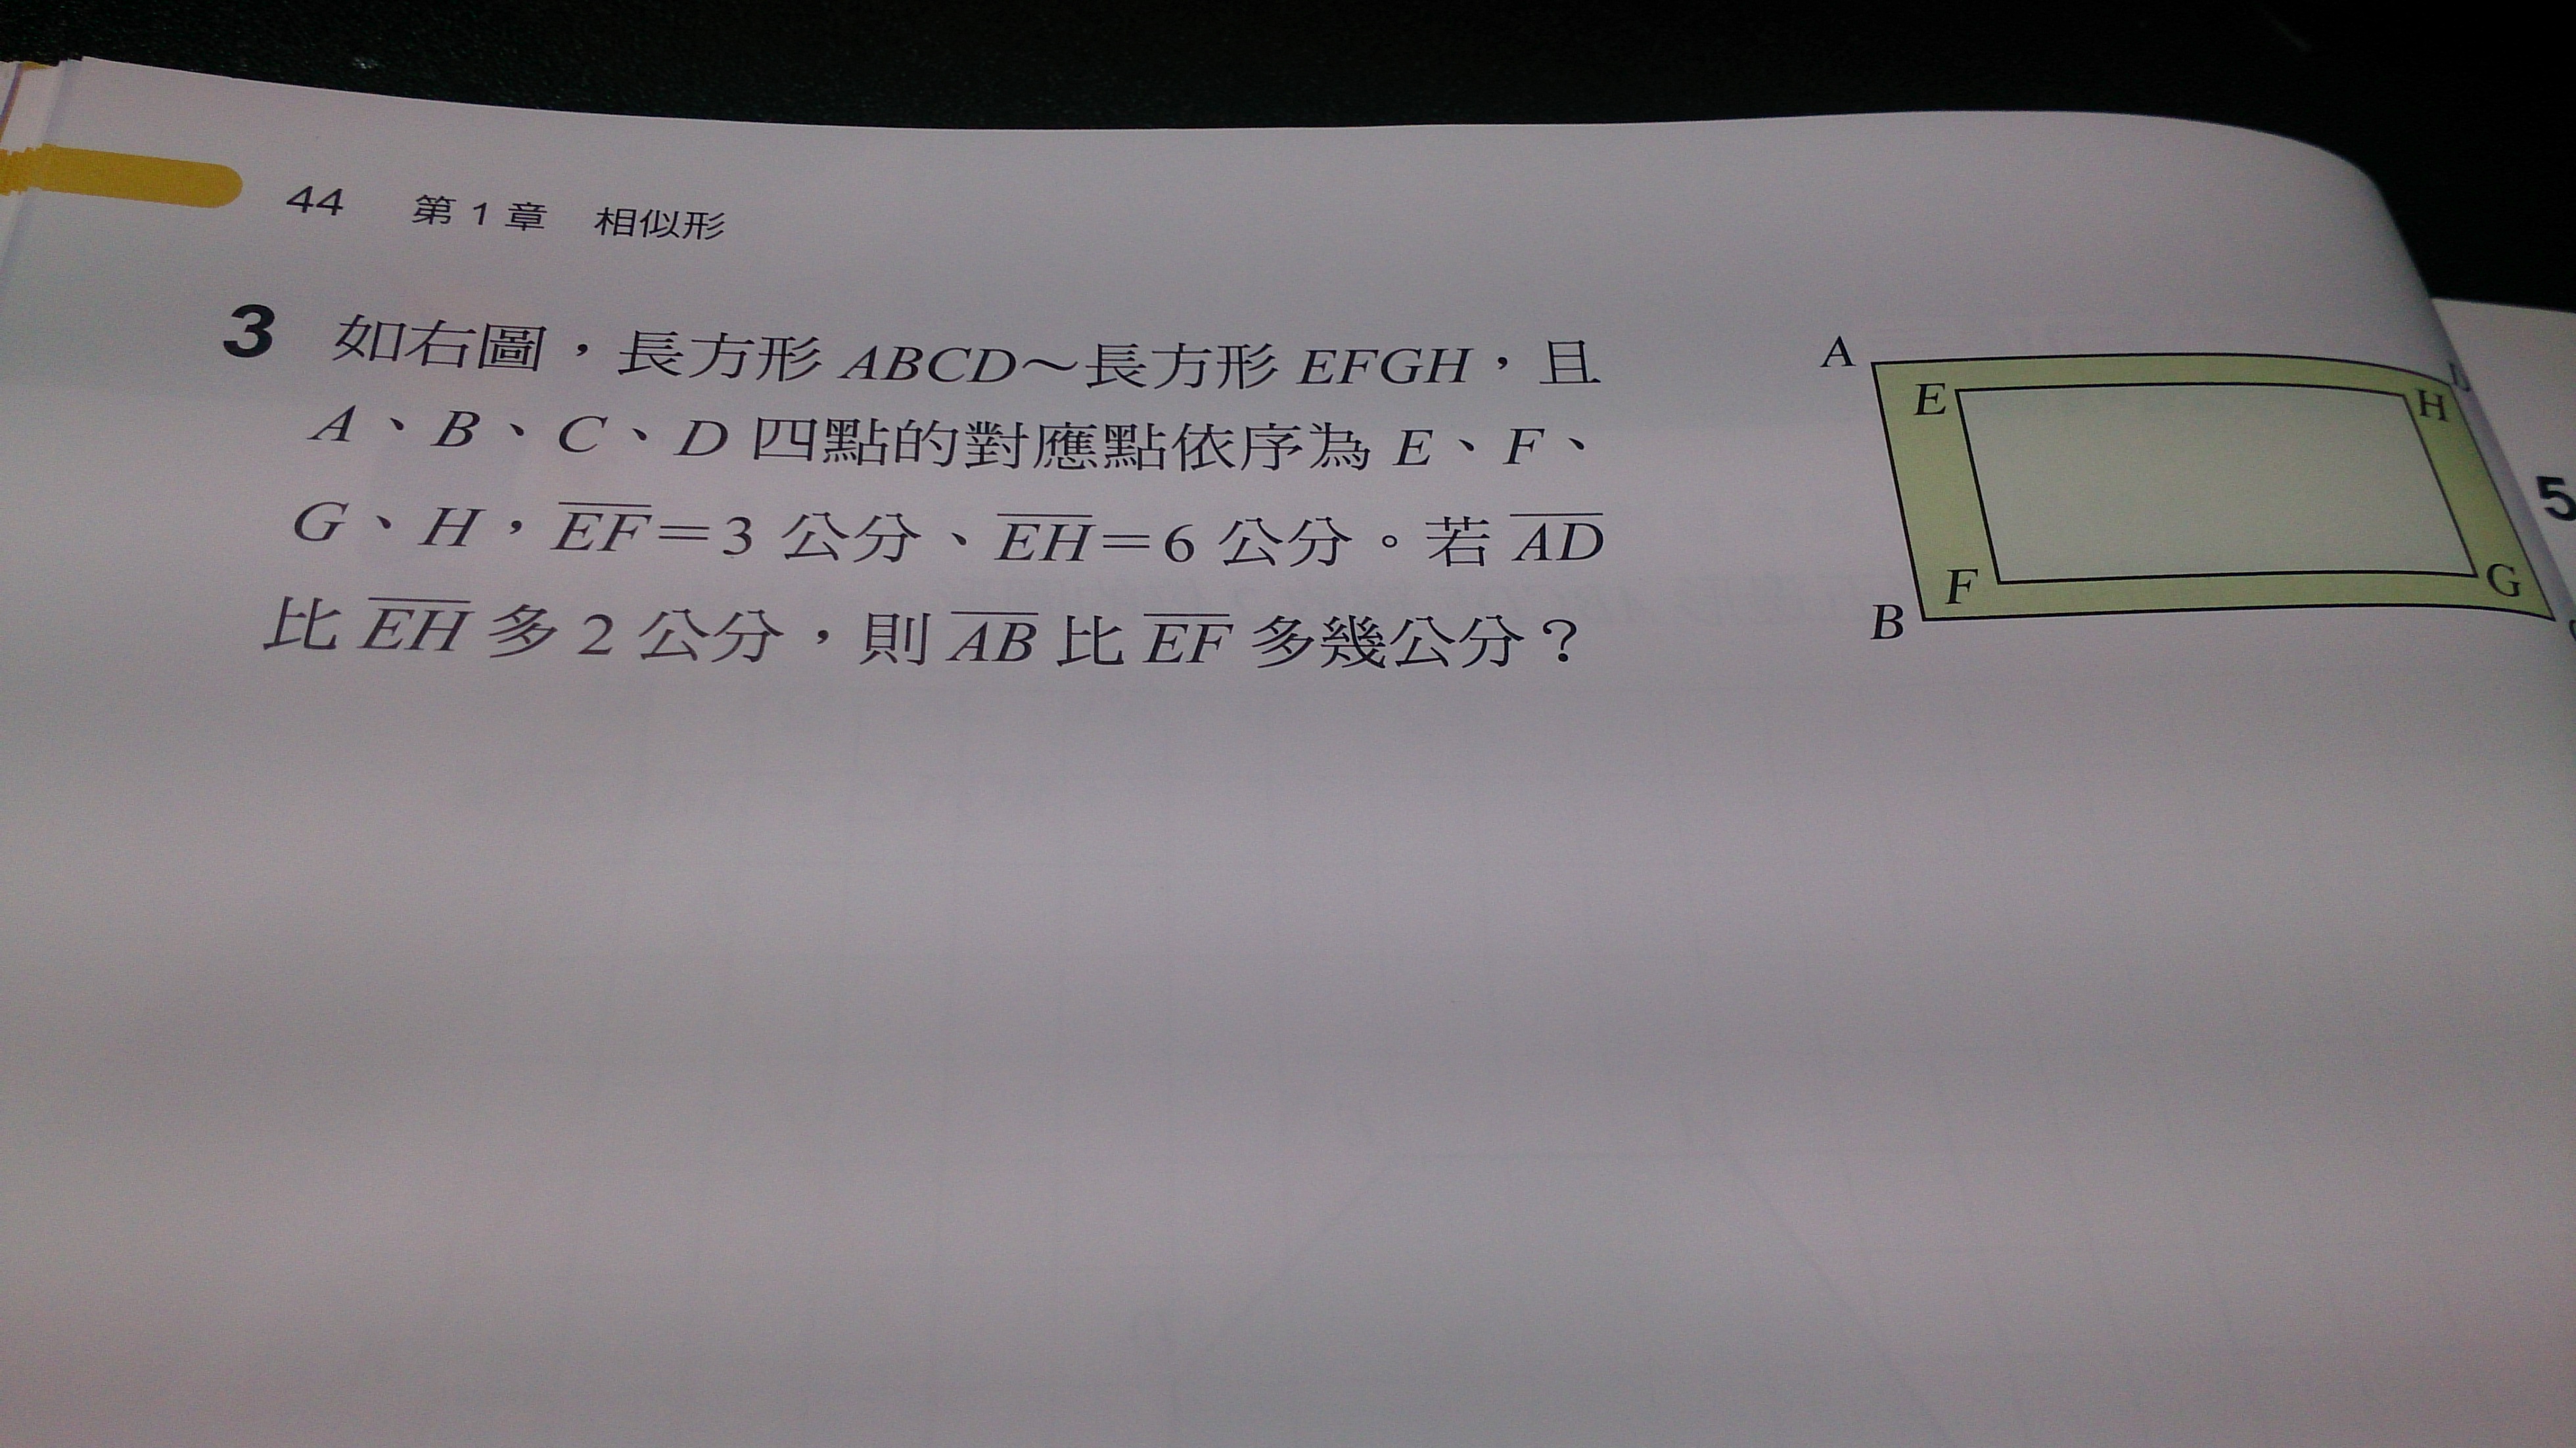 44 第1章 相似形
3 如右圖，長方形 ABCD～長方形 EFGH，且
A、B、C、D 四點的對應點依序為 E、F、
G、H，EF＝3 公分、EH＝6 公分。若 AD
比 EH 多 2 公分，則 AB 比 EF 多幾公分？
A
E
H
F
G
B
5